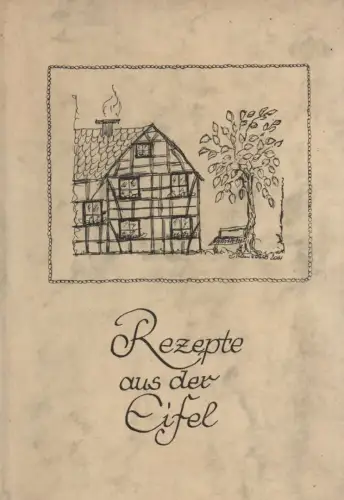 Rezepte
aus der
Eifel